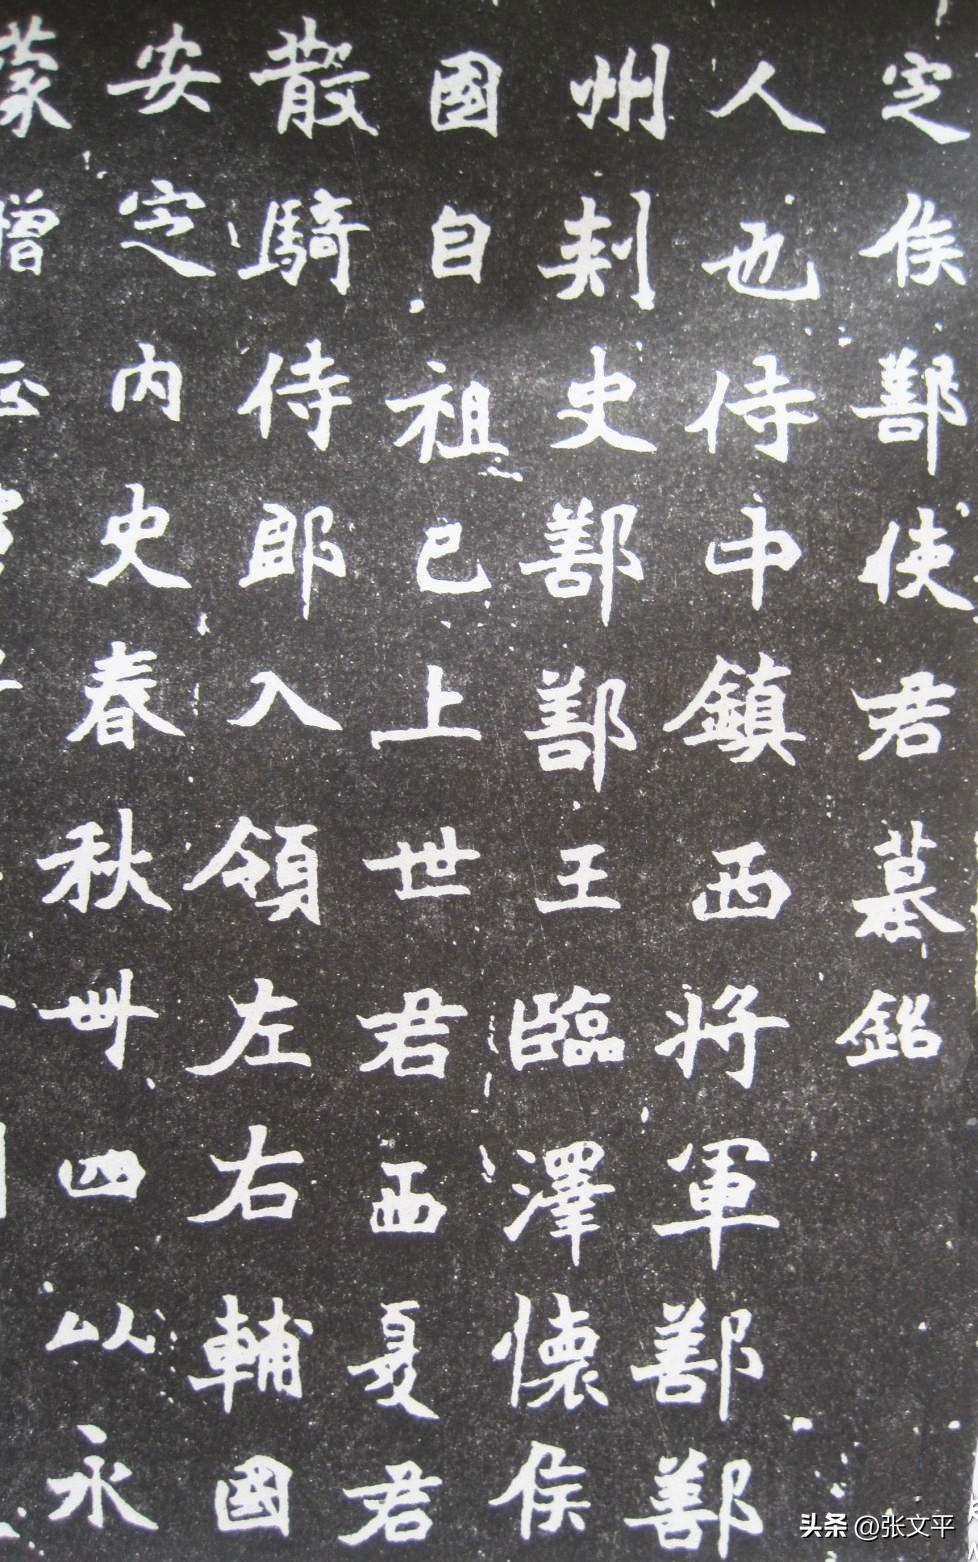 定侯鄯使君墓銘
人也侍中鎮西將軍鄯鄯
州刾史鄯鄯王臨澤懷侯
國自祖已上世君西夏君
散騎侍郎入領左右輔國
安定内史春秋卌四以永
蒙
头条 @张文平